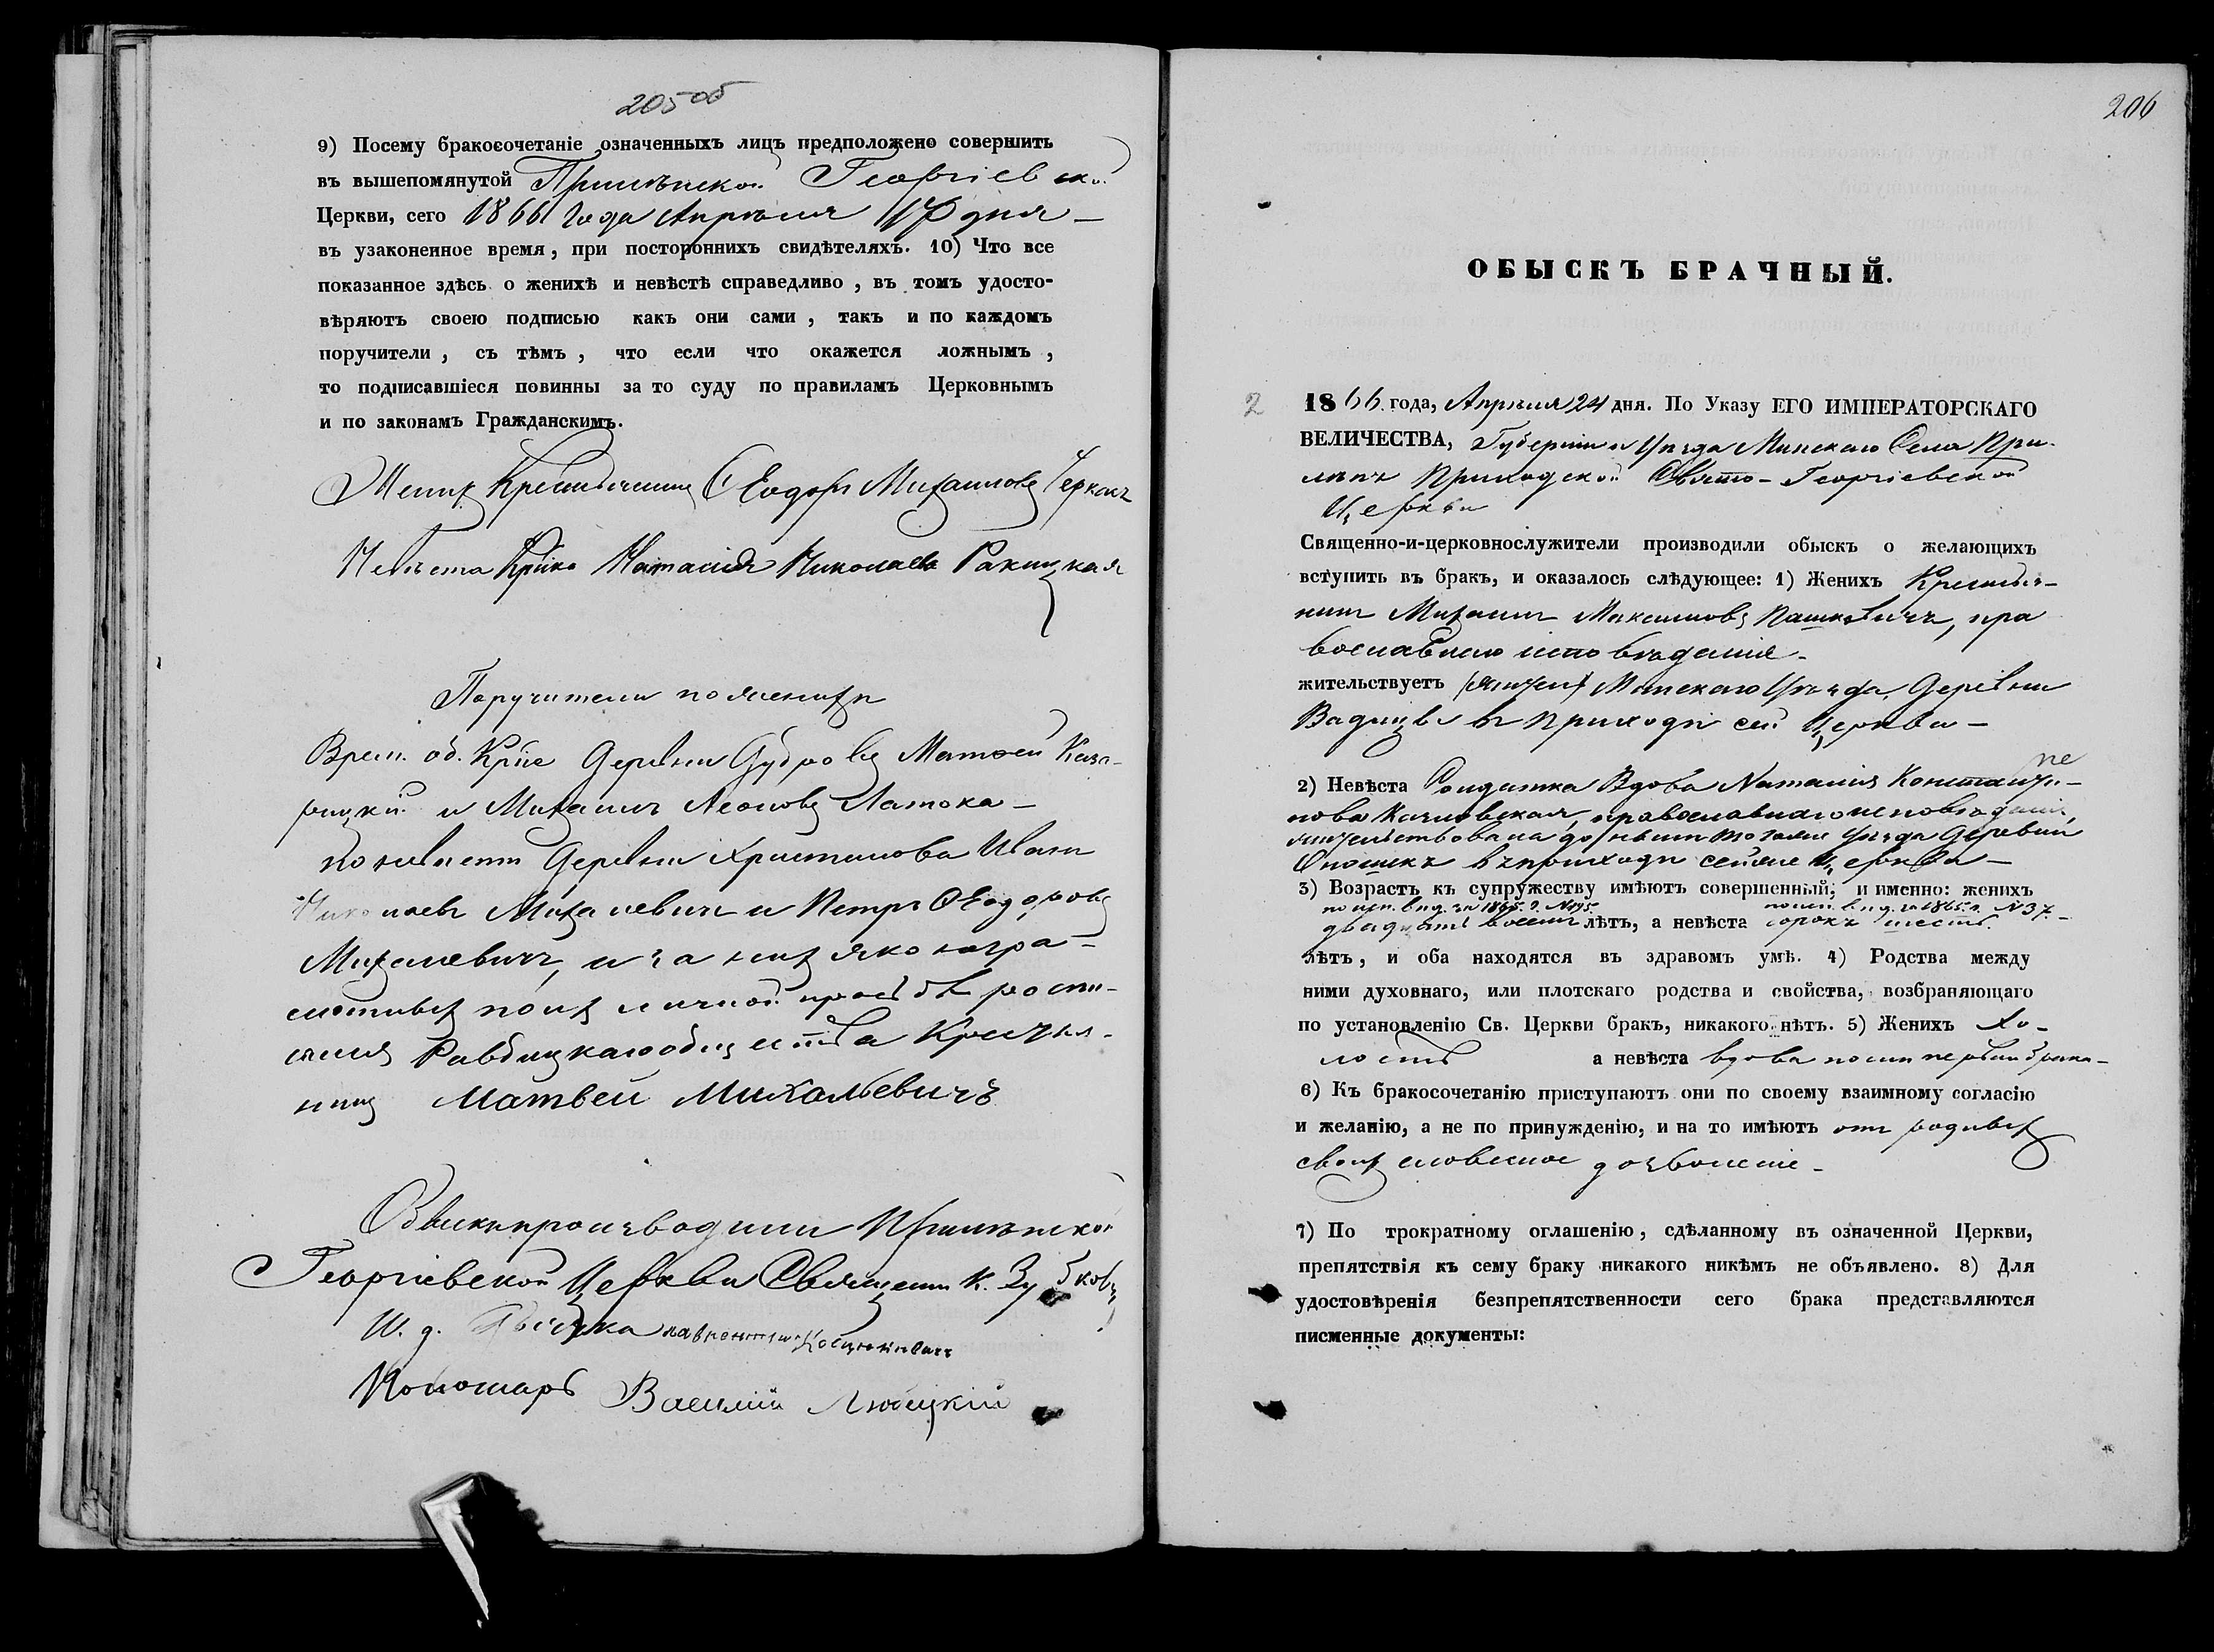 205 об
9) Посему бракосочетаніе означенныхъ лицъ предположено совершить
въ вышепомянутой Прилѣпской Георгіевской
Церкви, сего 1866 года Апрѣля 17 дня —
въ узаконенное время, при постороннихъ свидѣтеляхъ. 10) Что все
показанное здѣсь о женихѣ и невѣстѣ справедливо, въ томъ удосто-
вѣряютъ своею подписью какъ они сами, такъ и по каждомъ
поручители, съ тѣмъ, что если что окажется ложнымъ,
то подписавшіеся повинны за то суду по правиламъ Церковнымъ
и по законамъ Гражданскимъ.
Женихъ Крестьянинъ Ѳеодоръ Михаиловъ
Невѣста Наталія Николаева Ракицкая
Поручители по женихѣ
Врем. об. Деревни Дуброва Матѳей
и Михаилъ Леоновъ Латока —
по невѣстѣ Деревни Христинова Иванъ
Михалевичъ и Петръ Ѳеодоровъ
Михалевичъ, и за нихъ яко негра-
мотныхъ по ихъ личной просьбѣ роспи-
общества Крестья-
нинъ Матвей Михалевичъ
Обыскъ производили Прилѣпской
Георгіевской Церкви Священн. К. Зубковъ
И. д. Дьячка
Пономарь Василій Любецкій
206
ОБЫСКЪ БРАЧНЫЙ.
2 1866 года, Апрѣля 24 дня. По Указу ЕГО ИМПЕРАТОРСКАГО
ВЕЛИЧЕСТВА, Губерніи и Уѣзда Минскаго Села При-
лѣпъ Приходской Свято-Георгіевской
Церкви
Священно-и-церковнослужители производили обыскъ о желающихъ
вступить въ бракъ, и оказалось слѣдующее: 1) Женихъ Крестья-
нинъ Михаилъ Максимовъ Пашкевичъ, пра
вославнаго исповѣданія —
жительствуетъ Минскаго Уѣзда, Деревни
въ приходѣ сей Церкви —
2) Невѣста Солдатка Вдова Наталія Константи-
нова православнаго исповѣданія,
жительствовала до нынѣ того же Уѣзда Деревни
въ приходѣ сей же Церкви —
3) Возрастъ къ супружеству имѣютъ совершенный, и именно: женихъ
по исп. вѣд. за 1865. г. N195. по исп. вѣд. за 1865. г. N37.
двадцать восемь лѣтъ, а невѣста сорокъ шесть.
лѣтъ, и оба находятся въ здравомъ умѣ. 4) Родства между
ними духовнаго, или плотскаго родства и свойства, возбраняющаго
по установленію Св. Церкви бракъ, никакого нѣтъ. 5) Женихъ хо-
лостъ а невѣста вдова послѣ первого брака —
6) Къ бракосочетанію приступаютъ они по своему взаимному согласію
и желанію, а не по принужденію, и на то имѣютъ отъ родныхъ
своихъ словесное дозволеніе —
7) По трократному оглашенію, сдѣланному въ означенной Церкви,
препятствія къ сему браку никакого никѣмъ не объявлено. 8) Для
удостовѣренія безпрепятственности сего брака представляются
писменные документы: